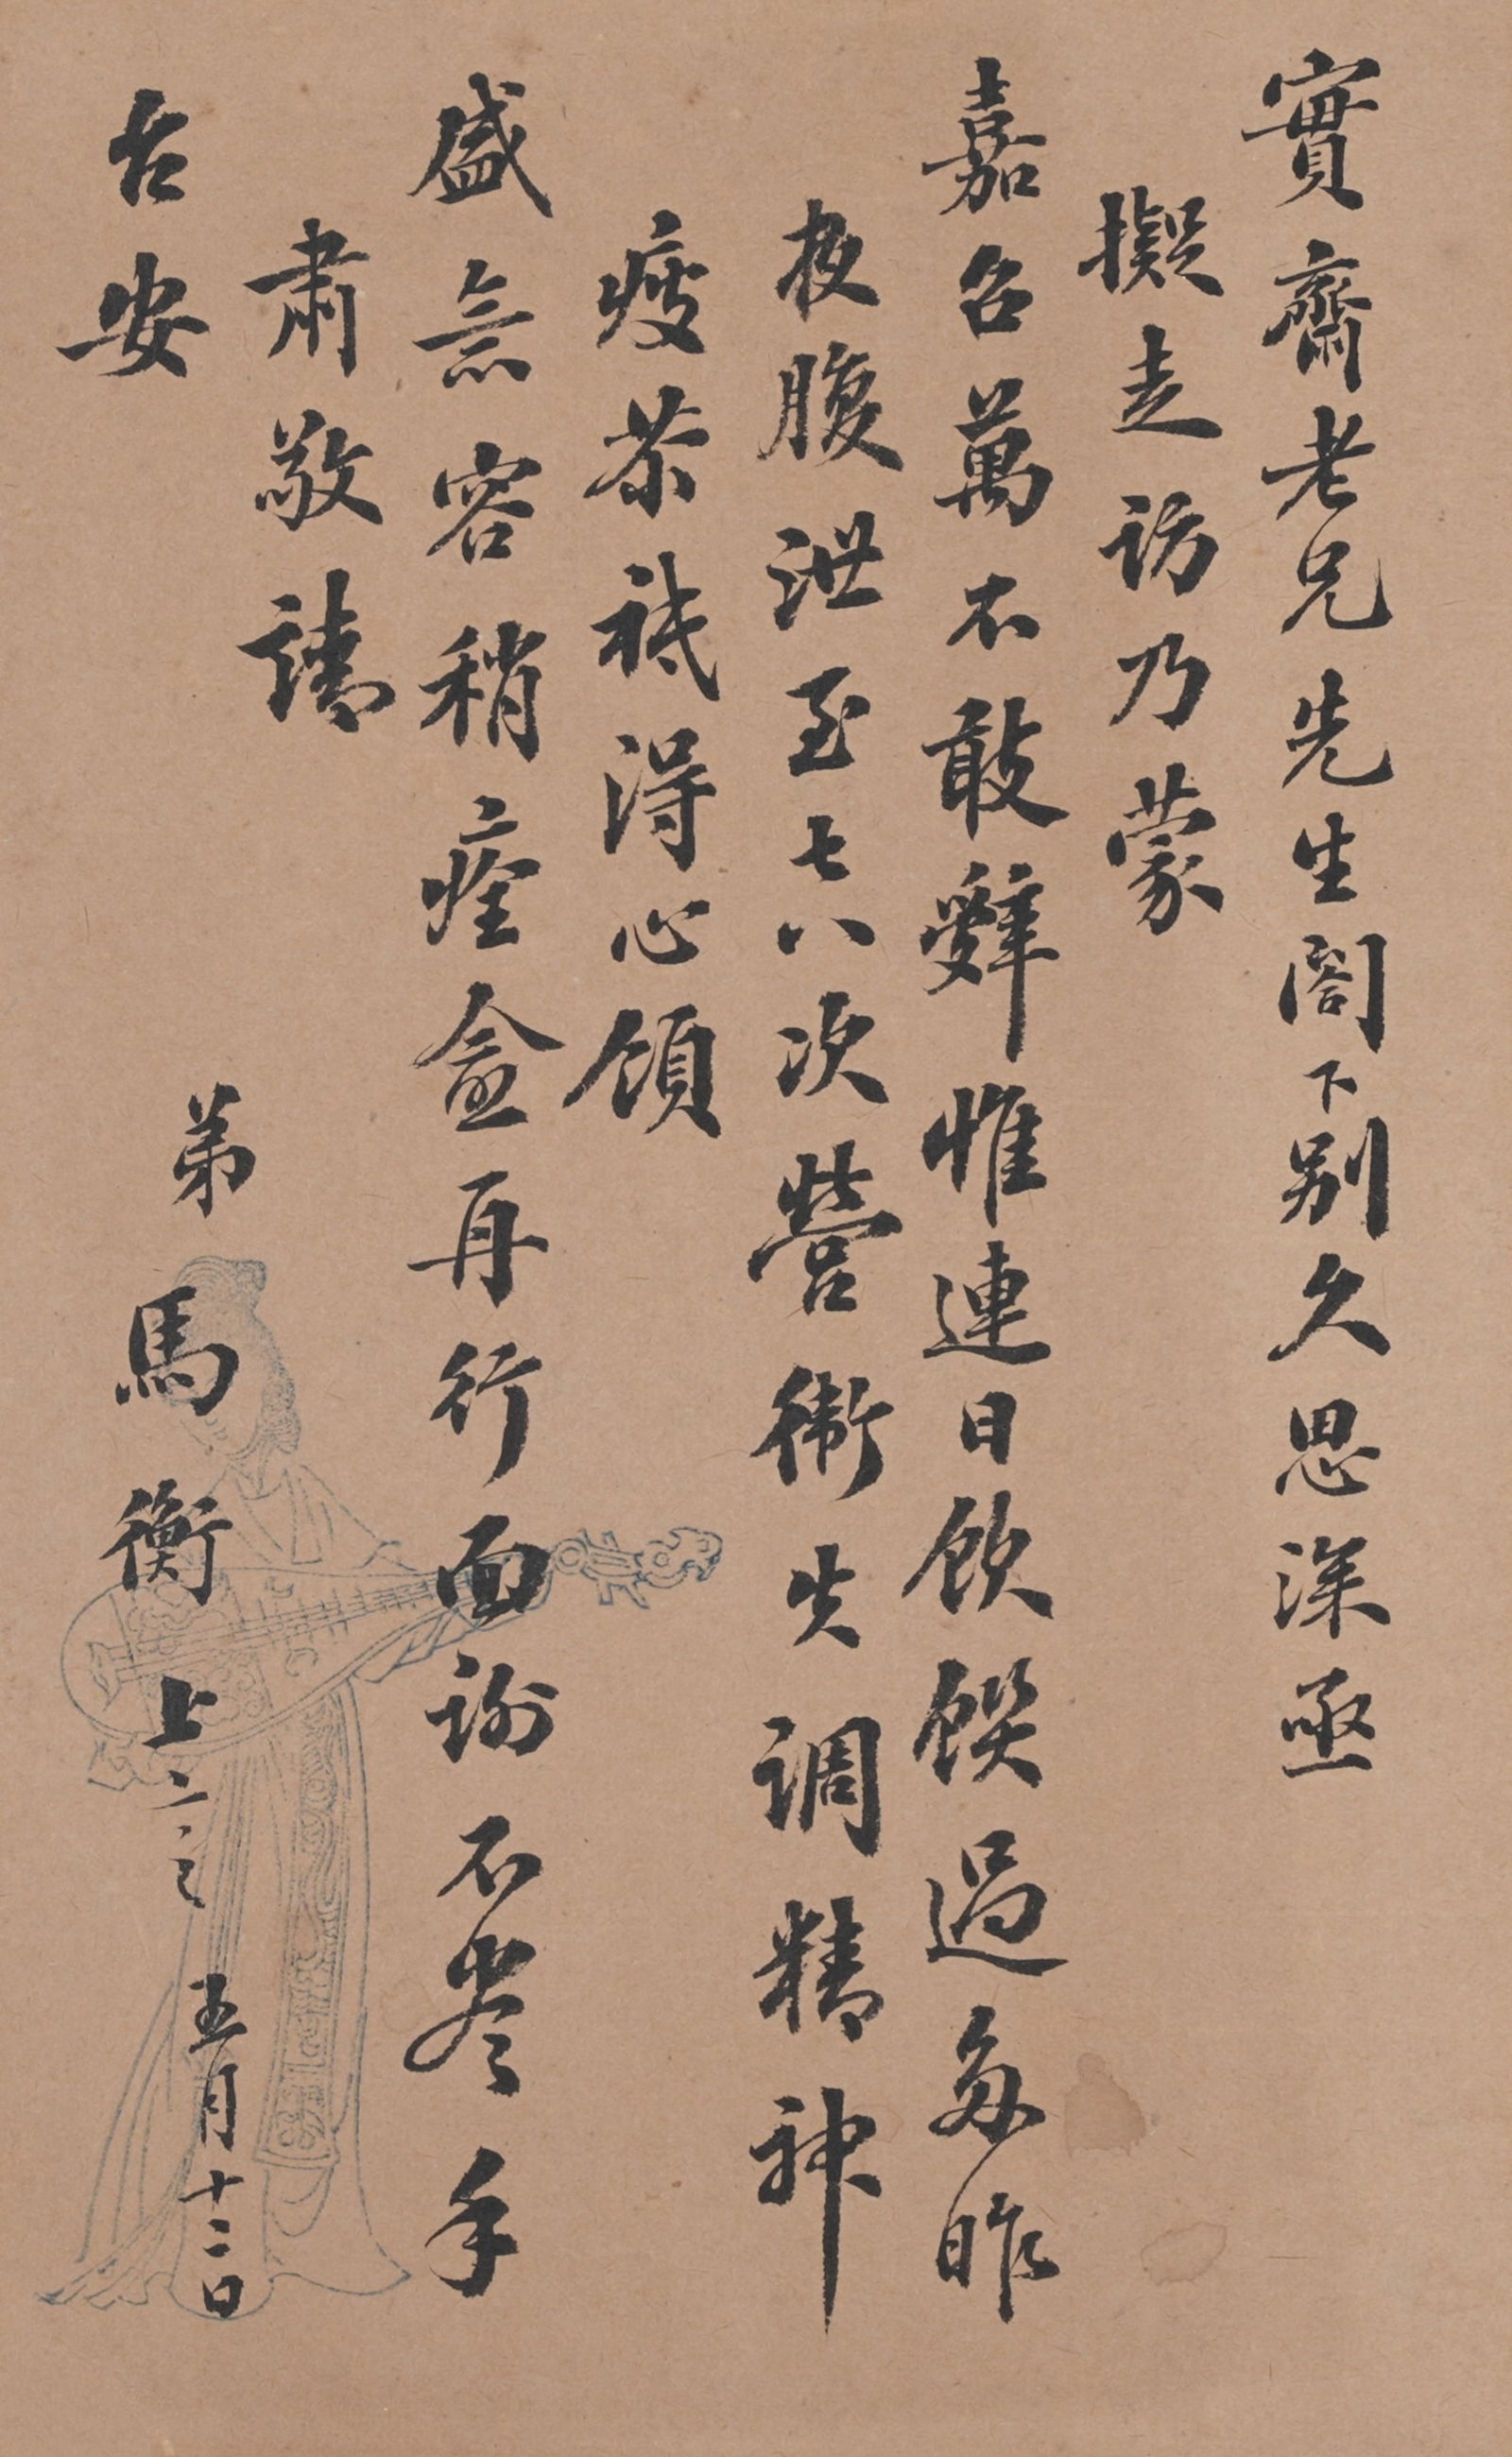 實齋老兄先生閣下別久思深亟
擬走訪乃蒙
嘉召萬不敢辭惟連日飲饌過多昨
夜腹泄至七八次營衛失調精神
疲苶祗得心領
盛意容稍痊愈再行面謝不盡手
肅敬請
台安
弟馬衡上言
五月十二日